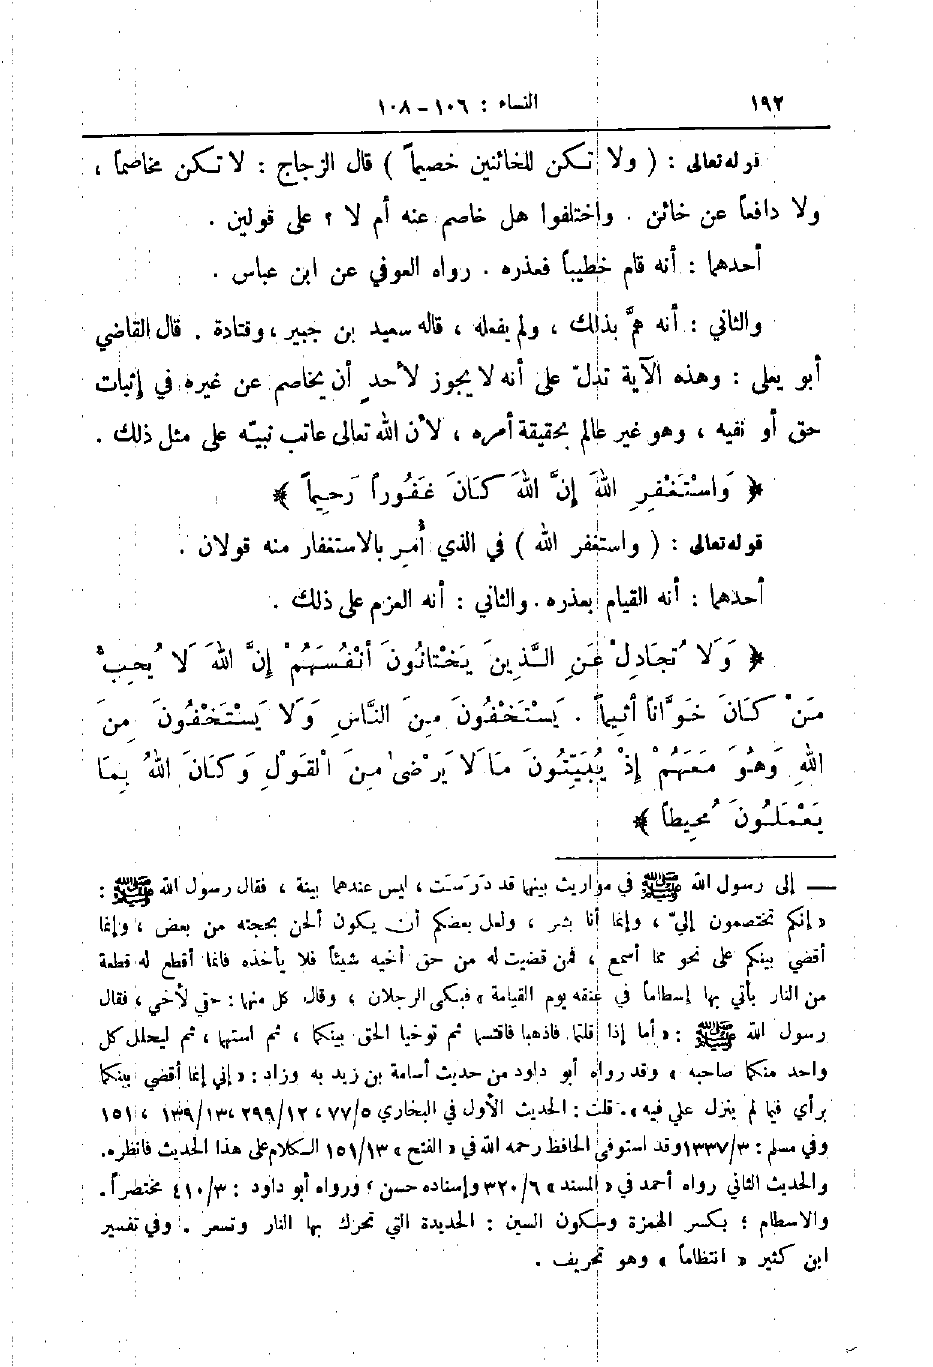 ١٩٢ النساء : ١٠٦ – ١٠٨
قوله تعالى : ( ولا تكن للخائنين خصيماً ) قال الزجاج : لا تكن مخاصماً ،
ولا دافعاً عن خائن . واختلفوا هل خاصم عنه أم لا ؟ على قولين .
أحدهما : أنه قام خطيباً فعذره . رواه العوفي عن ابن عباس .
والثاني : أنه همَّ بذلك ، ولم يفعله ، قاله سعيد بن جبير ، وقتادة . قال القاضي
أبو يعلى : وهذه الآية تدلّ على أنه لا يجوز لأحدٍ أن يخاصم عن غيره في إثبات
حق أو نفيه ، وهو غير عالم بحقيقة أمره ، لأن الله تعالى عاتب نبيّه على مثل ذلك .
﴿ وَاسْتَغْفِرِ اللهَ إِنَّ اللهَ كَانَ غَفُوراً رَحِيماً ﴾
قوله تعالى : ( واستغفر الله ) في الذي أُمِر بالاستغفار منه قولان .
أحدهما : أنه القيام بعذره . والثاني : أنه العزم على ذلك .
﴿ وَلَا تُجَادِلْ عَنِ الَّذِينَ يَخْتَانُونَ أَنْفُسَهُمْ إِنَّ اللهَ لَا يُحِبُّ
مَنْ كَانَ خَوَّاناً أَثِيماً . يَسْتَخْفُونَ مِنَ النَّاسِ وَلَا يَسْتَخْفُونَ مِنَ
اللهِ وَهُوَ مَعَهُمْ إِذْ يُبَيِّتُونَ مَا لَا يَرْضَىٰ مِنَ الْقَوْلِ وَكَانَ اللهُ بِمَا
يَعْمَلُونَ مُحِيطاً ﴾
— إلى رسول الله ﷺ في مواريث بينهما قد دَرَسَت ، ليس عندهما بينة ، فقال رسول الله ﷺ :
« إنكم تختصمون إليّ ، وإنما أنا بشر ، ولعل بعضكم أن يكون ألحن بحجته من بعض ، وإنما
أقضي بينكم على نحو مما أسمع ، فمن قضيت له من حق أخيه شيئاً فلا يأخذه فانما أقطع له قطعة
من النار يأتي بها إسطاماً في عنقه يوم القيامة » فبكى الرجلان ؛ وقال كل منهما : حقي لأخي ، فقال
رسول الله ﷺ : « أما إذا قلتما فاذهبا فاقتسما ثم توخيا الحق بينكما ، ثم استهما ، ثم ليحلل كل
واحد منكما صاحبه » وقد رواه أبو داود من حديث أسامة بن زيد به وزاد : « إني إنما أقضي بينكما
برأي فيما لم ينزل علي فيه » . قلت : الحديث الأول في البخاري ٧٧/٥ ، ٢٩٩/١٢ ، ١٣٩/١٣ ، ١٥١
وفي مسلم : ١٣٣٧/٣ وقد استوفى الحافظ رحمه الله في « الفتح » ١٥١/١٣ الكلام على هذا الحديث فانظره .
والحديث الثاني رواه أحمد في « المسند » ٣٢٠/٦ وإسناده حسن ، ورواه أبو داود : ٤١٠/٣ مختصراً .
والاسطام ؛ بكسر الهمزة وسكون السين : الحديدة التي تحرك بها النار وتسعر . وفي تفسير
ابن كثير « انتظاماً » وهو تحريف .